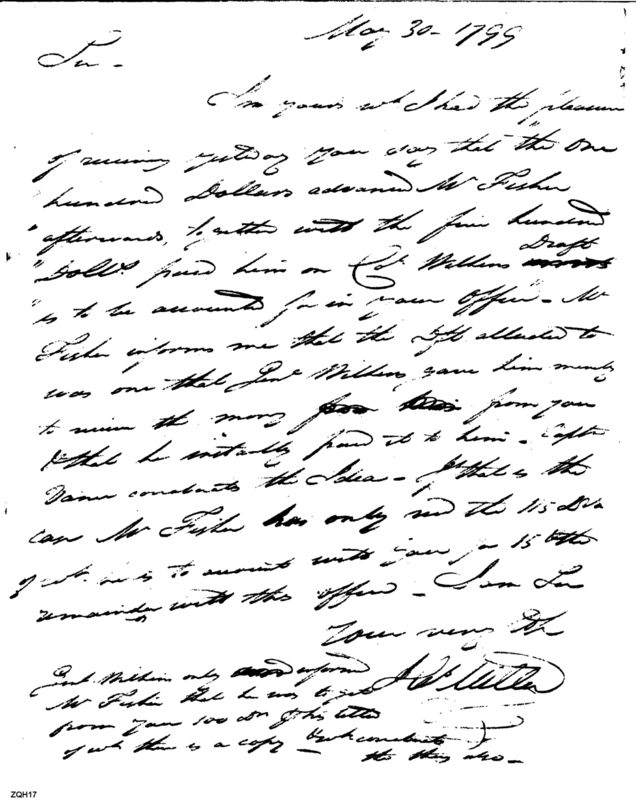 May 30 - 1799
Sir -
In yours wh I had the pleasure
of receiving yesterday you say that the One
hundred Dollars advanced Mr Fisher
"afterwards, together with the five hundred
Draft
"Dolls. paid him on Col Wilkins
"is to be accounted for in your Office" - Mr
Fisher informs me that the Dft alluded to
was one that Genl Wilkins gave him merely
to receive the money from you
& that he instantly paid it to him - Capt
Vance corroborates the Idea - If that is the
case Mr Fisher has only recd the 115 Drs
of wh. he is to account with you for 15 & the
remainder with this office - I am Sir
Your very
Genl Wilkins only informd
Mr Fisher that he was to get
from you 100 Drs & his letter
of wh there is a copy wh corroborates
the this also -
ZQH17